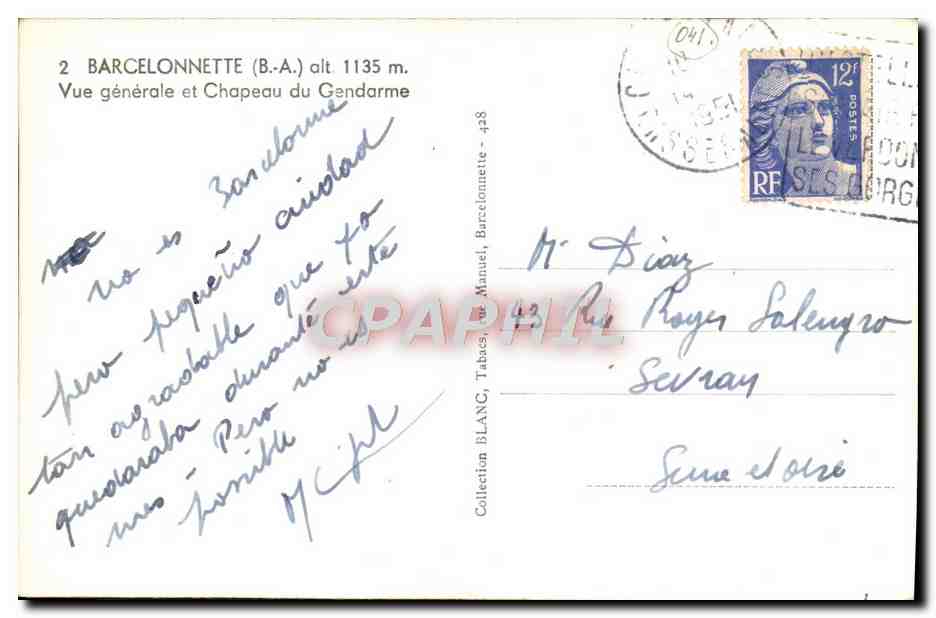 2 BARCELONNETTE (B.-A.) alt. 1135 m.
Vue générale et Chapeau du Gendarme
no es Barcelonne
pero pequeño ciudad
tan agradable que yo
quedaraba durante este
mes - Pero no es
possible
Collection BLANC, Tabacs, rue Manuel, Barcelonnette - 428
041
1951
12F
POSTES
RF
SES GORGE
CPAPHIL
Mr Diaz
43 Rue Roger Salengro
Sevran
Seine et oise